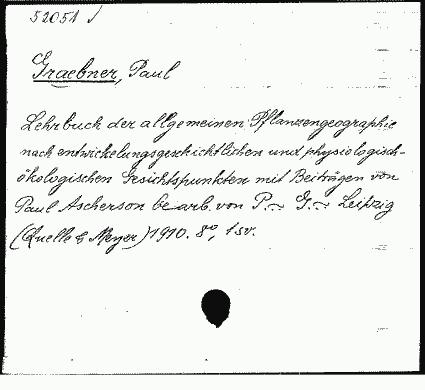 52051 √
Graebner, Paul
Lehrbuch der allgemeinen Pflanzengeographie
nach entwickelungsgeschichtlichen und physiologisch-
ökologischen Gesichtspunkten mit Beiträgen von
Paul Ascherson bearb. von P. ~ G. ~ Leipzig
(Quelle & Meyer) 1910. 8°, 1 sv.